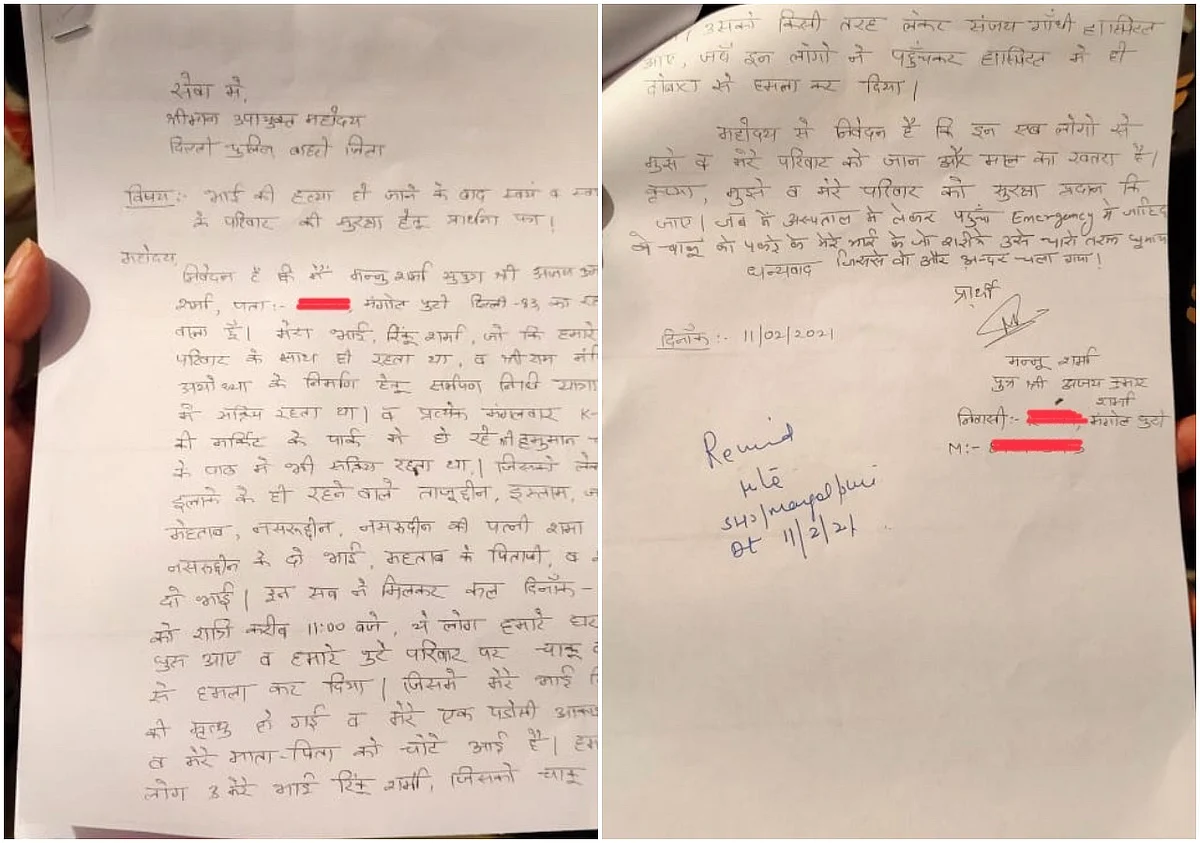 सेवा में,
श्रीमान उपायुक्त महोदय
दिल्ली पुलिस बाहरी जिला
विषय:- भाई की हत्या हो जाने के बाद स्वयं व
के परिवार की सुरक्षा हेतू प्रार्थना पत्र।
महोदय,
निवेदन है कि मैं मन्नू शर्मा सुपुत्र श्री अजय
शर्मा, पता:- , मंगोल पुरी दिल्ली -83 का
वाला हूँ। मेरा भाई, रिंकू शर्मा, जो कि हमारे
परिवार के साथ ही रहता था, व श्री राम
अयोध्या के निर्माण हेतू समर्पण निधी यात्रा
में सक्रिय रहता था। व प्रत्येक मंगलवार K-
की मार्किट के पार्क में हो रहे श्री हनुमान
के पाठ में भी सक्रिय रहता था। जिसको
इलाके के ही रहने वाले ताजूद्दीन, इस्लाम,
मेहताब, नसरूद्दीन, नसरूद्दीन की पत्नी शमा
नसरूद्दीन के दो भाई, महताब के पिताजी, व
दो भाई। इन सब ने मिलकर कल दिनाँक -
को रात्रि करीब 11:00 बजे, ये लोग हमारे घर
घुस आए व हमारे पुरे परिवार पर चाकू
से हमला कर दिया। जिसमे मेरे भाई
की मृत्यु हो गई व मेरे एक पडोसी
व मेरे माता-पिता को चोटे आई है।
लोग मेरे भाई रिंकू शर्मा, जिसको चाकू
उसको किसी तरह लेकर संजय गाँधी हास्पिटल
आए, जहाँ इन लोगो ने पहुँचकर हास्पिटल मे ही
दोबारा से हमला कर दिया।
महोदय से निवेदन है कि इन सब लोगो से
मुझे व मेरे परिवार को जान और माल का खतरा है।
कृप्या, मुझे व मेरे परिवार को सुरक्षा प्रदान कि
जाए। जब में अस्पताल में लेकर पहुँचा Emergency में जाहिद
ने चाकू को पकड़े के मेरे भाई के जो शरीर में उसे चारो तरफ
धन्यवाद जिससे वो और अन्दर चला गया।
प्रार्थी
दिनाँक:- 11/02/2021
मन्नू शर्मा
पुत्र श्री अजय कुमार
शर्मा
निवासी:- , मंगोल पुरी
M:-
SHO/Mangolpuri
Dt 11/2/21